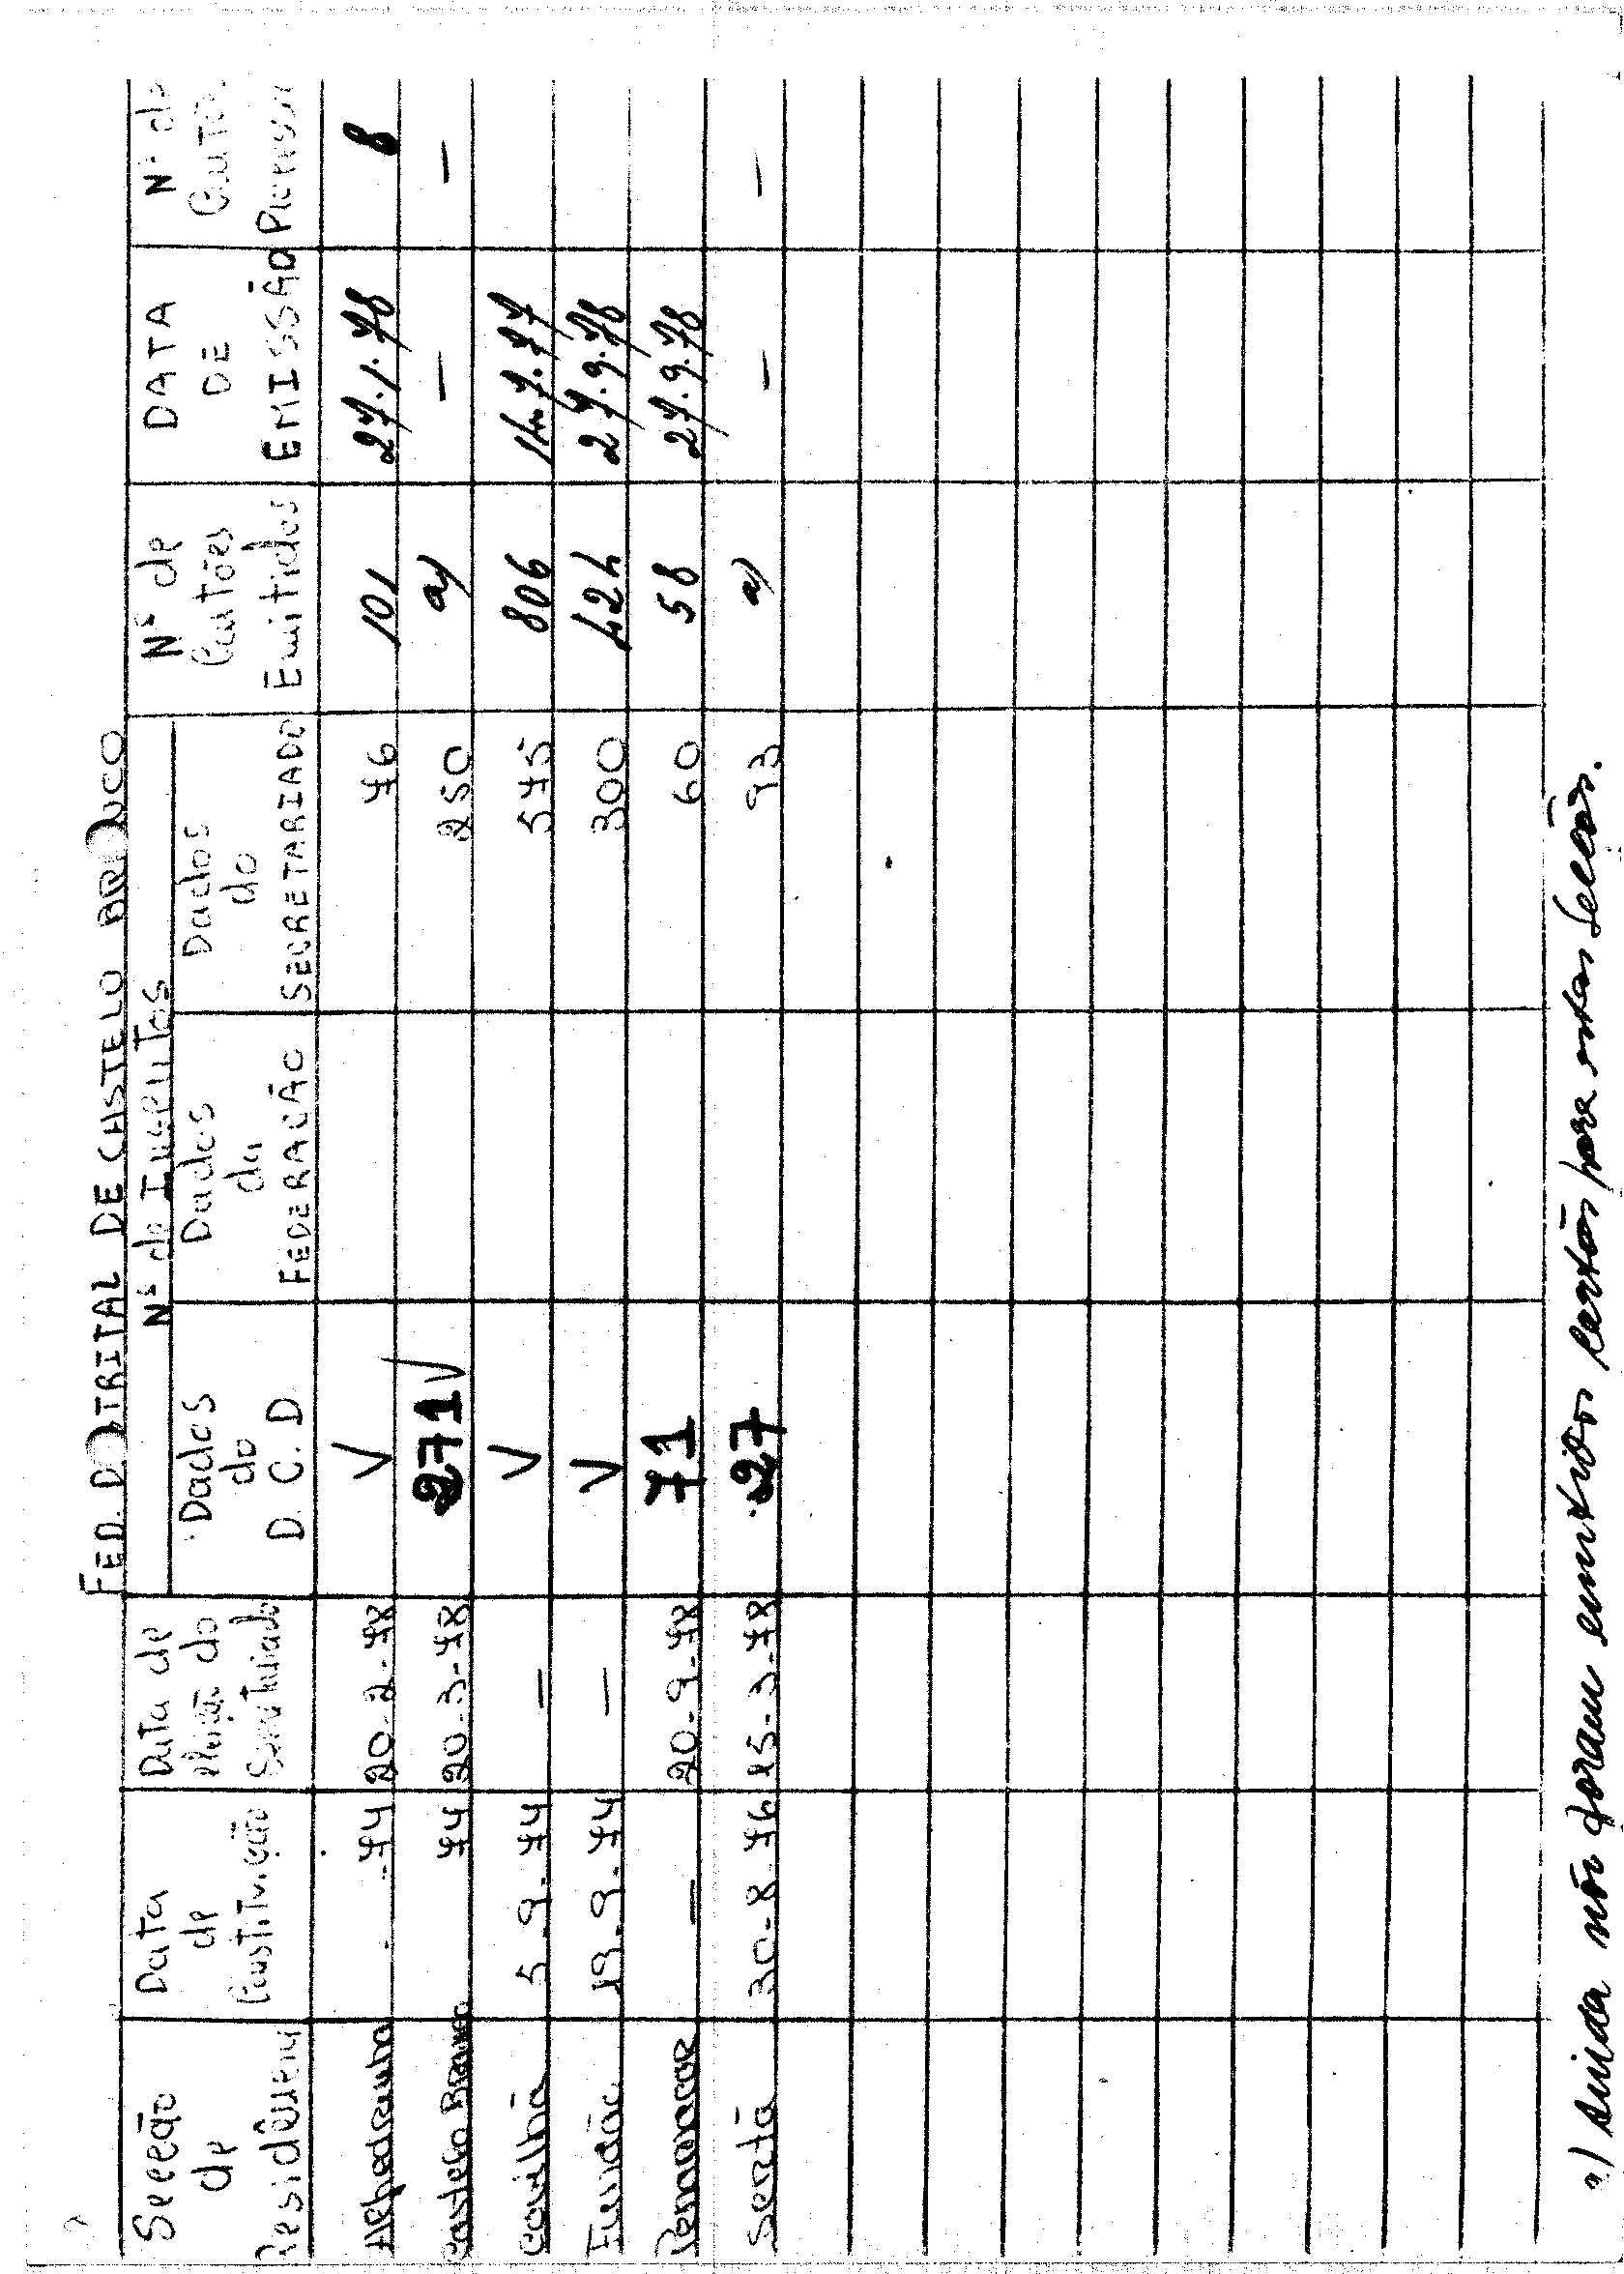 FED. DITRITAL DE CASTELO BRANCO
Secção de Residência | Data de Constituição | Data de eleição do Secretariado | Nº de Inscritos | Nº de Cartões Emitidos | DATA DE EMISSÃO | Nº de
Dados do D.C.D | Dados da FEDERAÇÃO | Dados do SECRETARIADO
Alpedrinha | 74 | 20-2-78 | V | 76 | 101 | 27.1.78 | 8
Castelo Branco | 74 | 20-3-78 | 271 V | 250 | a) | — | —
Covilhã | 5-9-74 | — | V | 575 | 806 | 14.7.77
Fundão | 19-9-74 | — | V | 300 | 424 | 27.9.78
Penamacor | — | 20-9-78 | 71 | 60 | 58 | 27.9.78
Sertã | 30-8-76 | 15-3-78 | 27 | 93 | a) | — | —
a) Ainda não foram emitidos cartões para estas Secções.